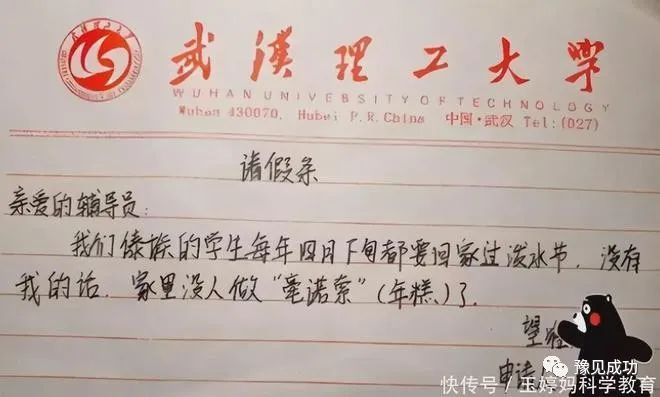 武漢理工大学
WUHAN UNIVERSITY OF TECHNOLOGY
Wuhan 430070, Hubei P.R.China 中国·武汉 Tel:(027)
请假条
亲爱的辅导员:
我们傣族的学生每年四月下旬都要回家过泼水节,没有
我的话,家里没人做“毫诺索”(年糕)了.
望
申请
豫见成功
快传号/玉婷妈科学教育